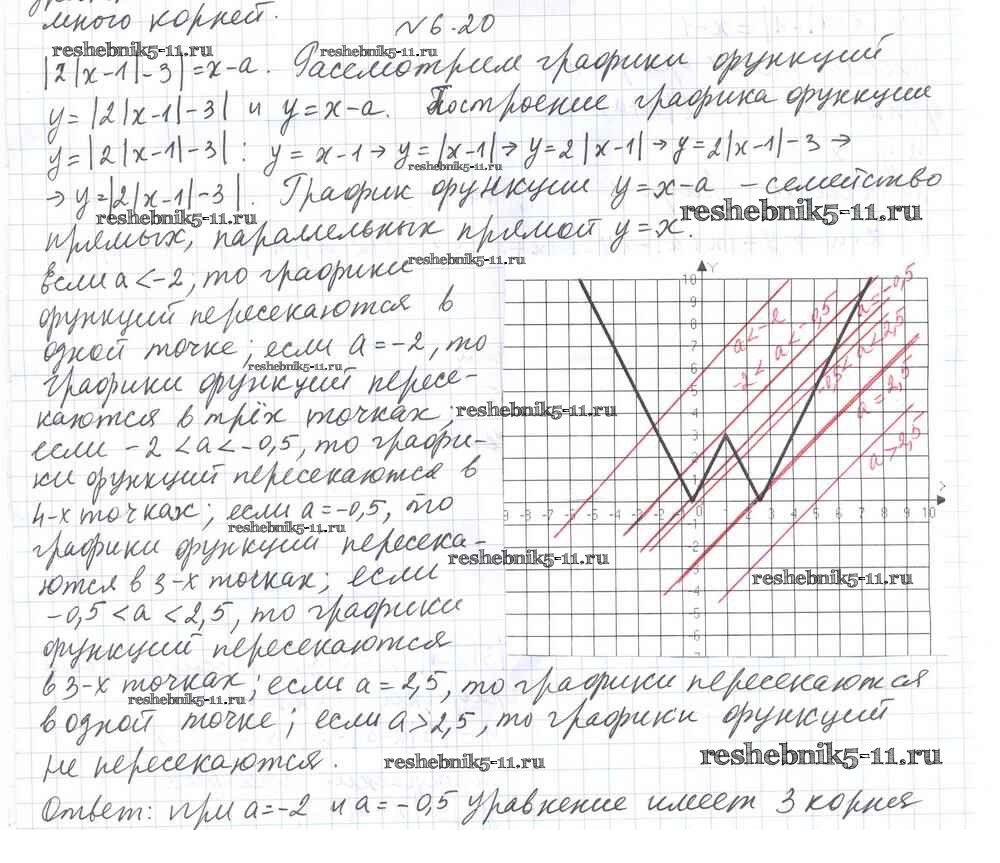 много корней.
№ 6.20
reshebnik5-11.ru reshebnik5-11.ru
|2|x-1|-3|=x-a. Рассмотрим графики функций
y=|2|x-1|-3| и y=x-a. Построение графика функции
y=|2|x-1|-3|: y=x-1→y=|x-1|→y=2|x-1|→y=2|x-1|-3→
reshebnik5-11.ru
→y=|2|x-1|-3|. График функции y=x-a – семейство
reshebnik5-11.ru reshebnik5-11.ru
прямых, параллельных прямой y=x.
reshebnik5-11.ru
Если a<-2, то графики
функций пересекаются в
одной точке; если a=-2, то
reshebnik5-11.ru
графики функций пересе-
каются в трёх точках;
reshebnik5-11.ru
если -2<a<-0,5, то графи-
ки функций пересекаются в
4-х точках; если a=-0,5, то
reshebnik5-11.ru
графики функций пересека-
reshebnik5-11.ru
ются в 3-х точках; если
reshebnik5-11.ru
-0,5<a<2,5, то графики
функций пересекаются
в 3-х точках; если a=2,5, то графики пересекаются
reshebnik5-11.ru
в одной точке; если a>2,5, то графики функций
reshebnik5-11.ru reshebnik5-11.ru
не пересекаются.
Ответ: при a=-2 и a=-0,5 уравнение имеет 3 корня
10 Y
9
8
7
6
5
4
3
2
1
-8 -7 -6 -5 -4 -3 -2 -1 0 1 2 3 4 5 6 7 8 9 10
-1
-2
-3
-4
-5
-6
a<-2
-2<a<-0,5
a=-0,5
-0,5<a<2,5
a=2,5
a>2,5